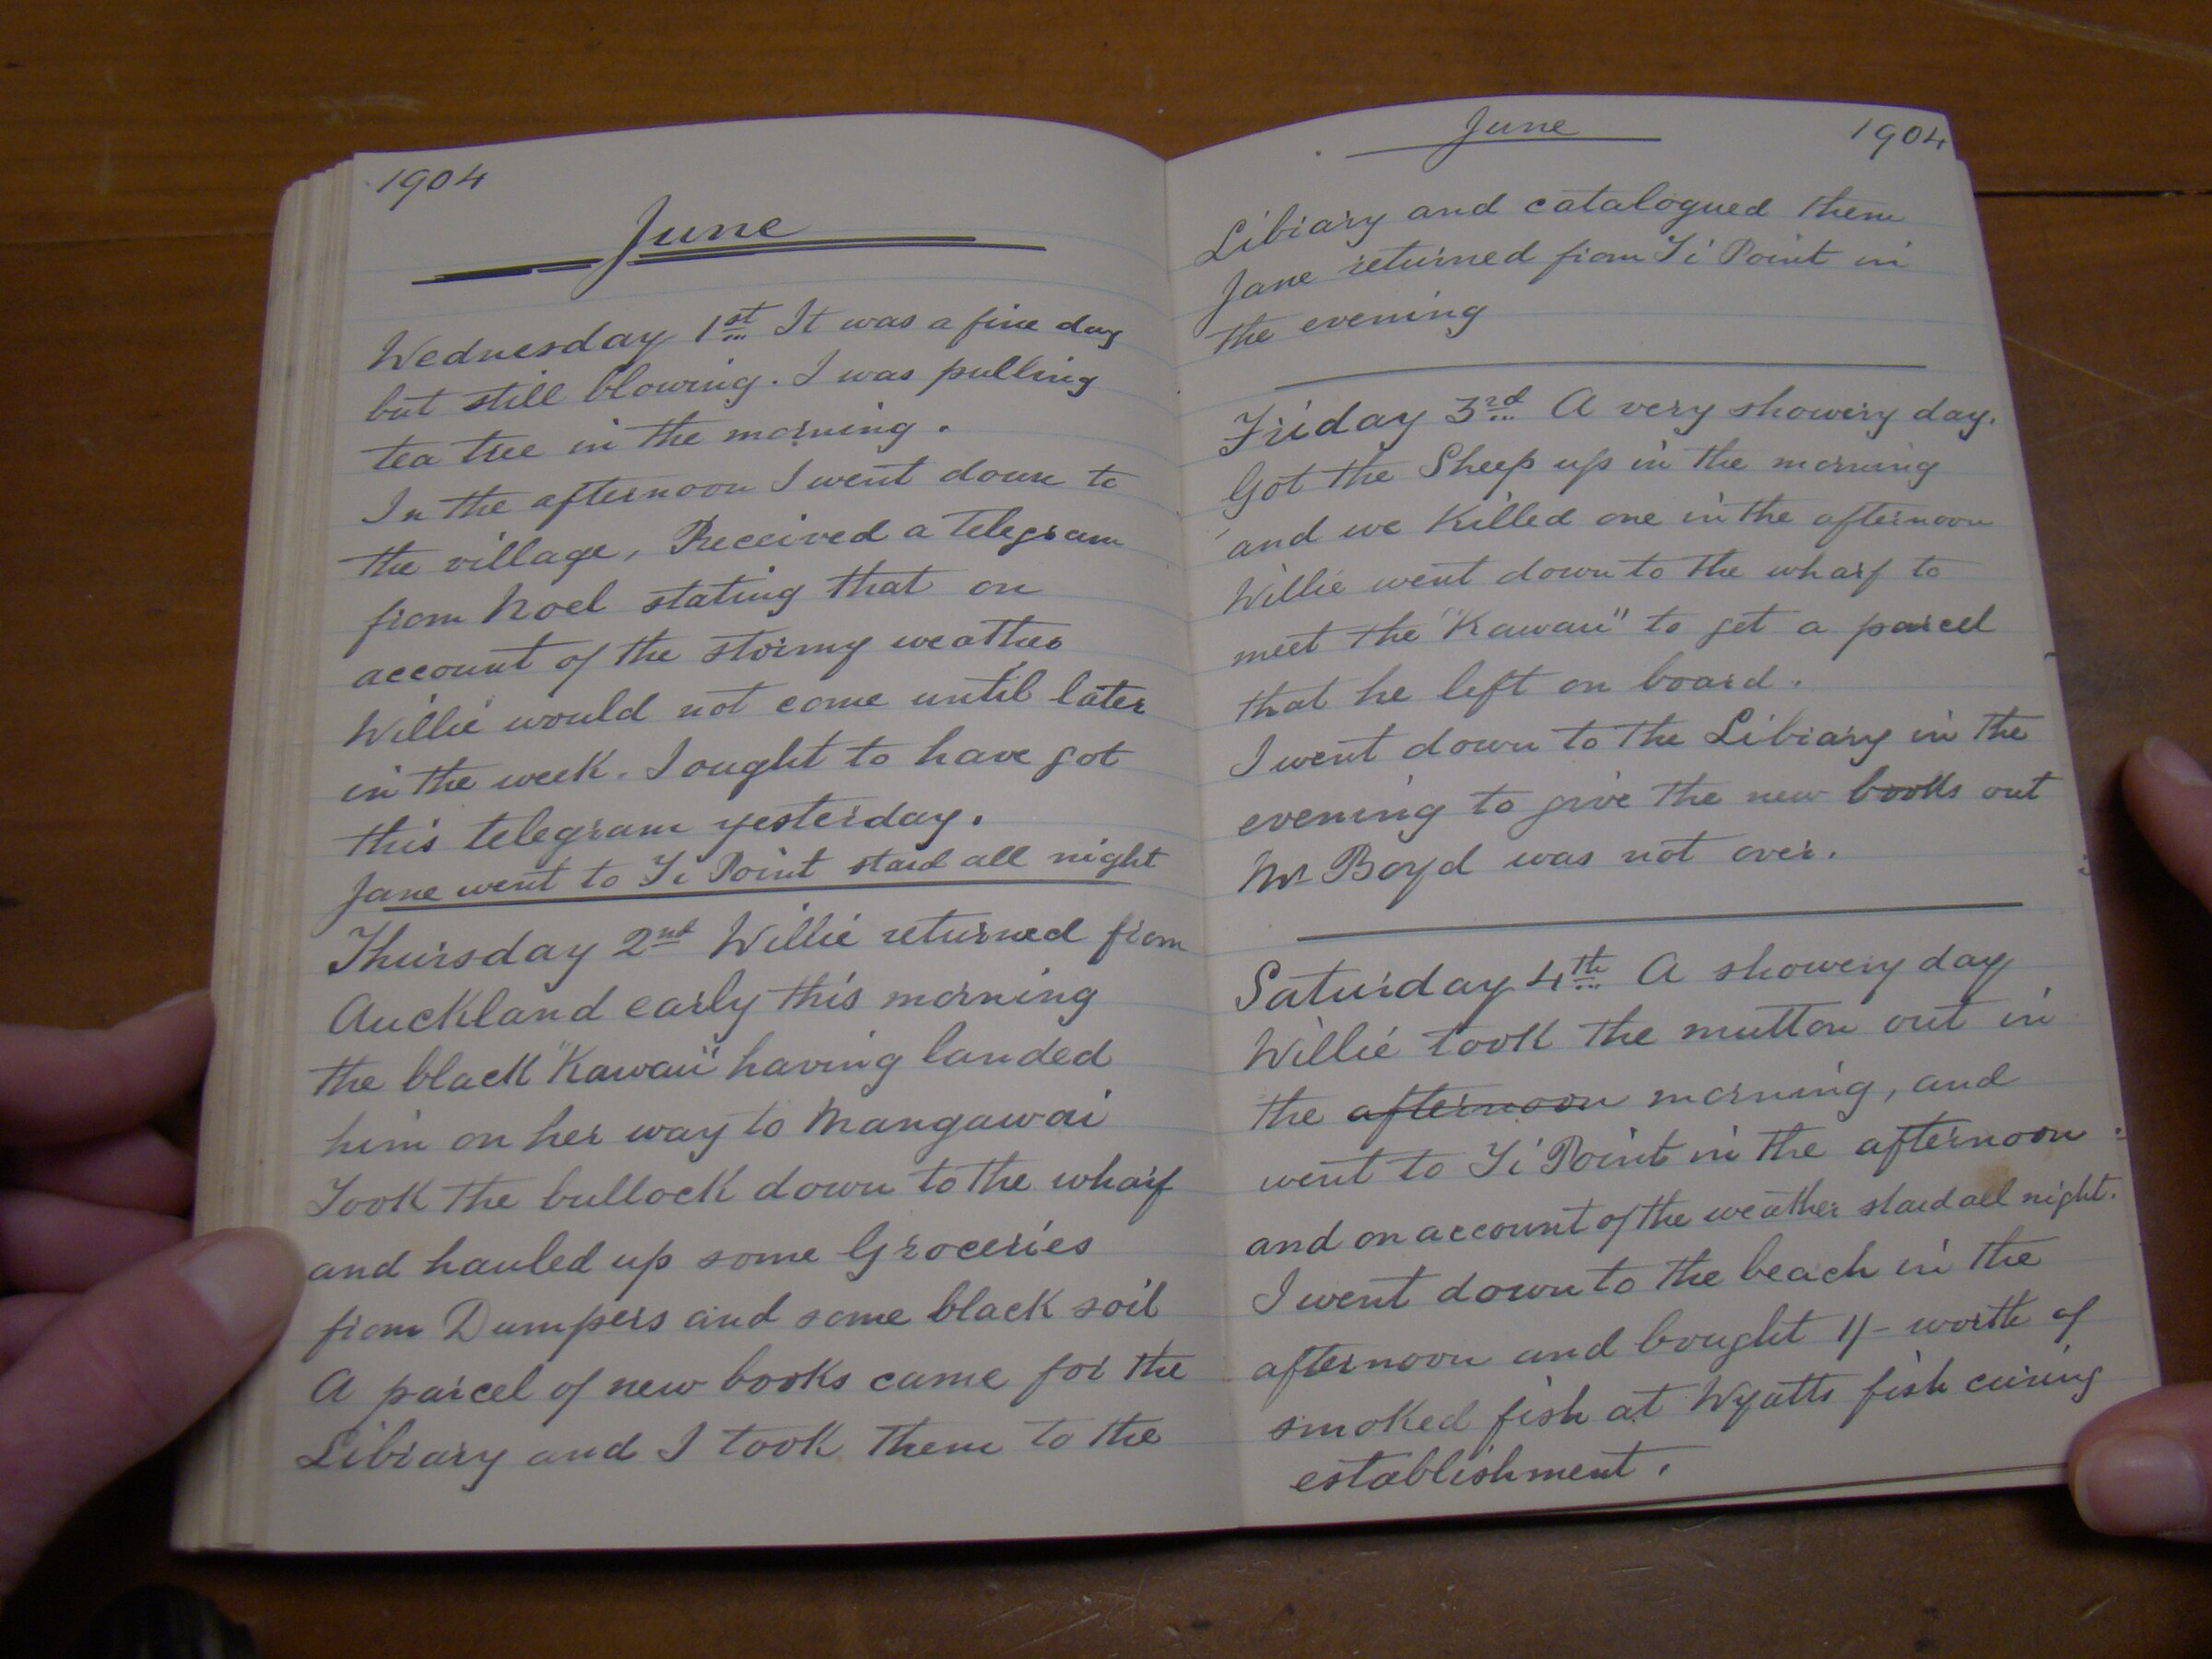 1904
June
Wednesday 1st It was a fine day
but still blowing. I was pulling
tea tree in the morning.
In the afternoon I went down to
the village, Received a telegram
from Noel stating that on
account of the stormy weather
Willie would not come until later
in the week. I ought to have got
this telegram yesterday.
Jane went to Ti Point staid all night
Thursday 2nd Willie returned from
Auckland early this morning
the black "Kawau" having landed
him on her way to Mangawai
Took the bullock down to the wharf
and hauled up some Groceries
from Dumpers and some black soil
A parcel of new books came for the
Library and I took them to the
June 1904
Library and catalogued them
Jane returned from Ti Point in
the evening
Friday 3rd A very showery day.
Got the Sheep up in the morning
and we Killed one in the afternoon
Willie went down to the wharf to
meet the "Kawau" to get a parcel
that he left on board.
I went down to the Library in the
evening to give the new books out
Mr Boyd was not over.
Saturday 4th A showery day
Willie took the mutton out in
the afternoon morning, and
went to Ti Point in the afternoon
and on account of the weather staid all night.
I went down to the beach in the
afternoon and bought 1/- worth of
smoked fish at Wyatts fish curing
establishment.